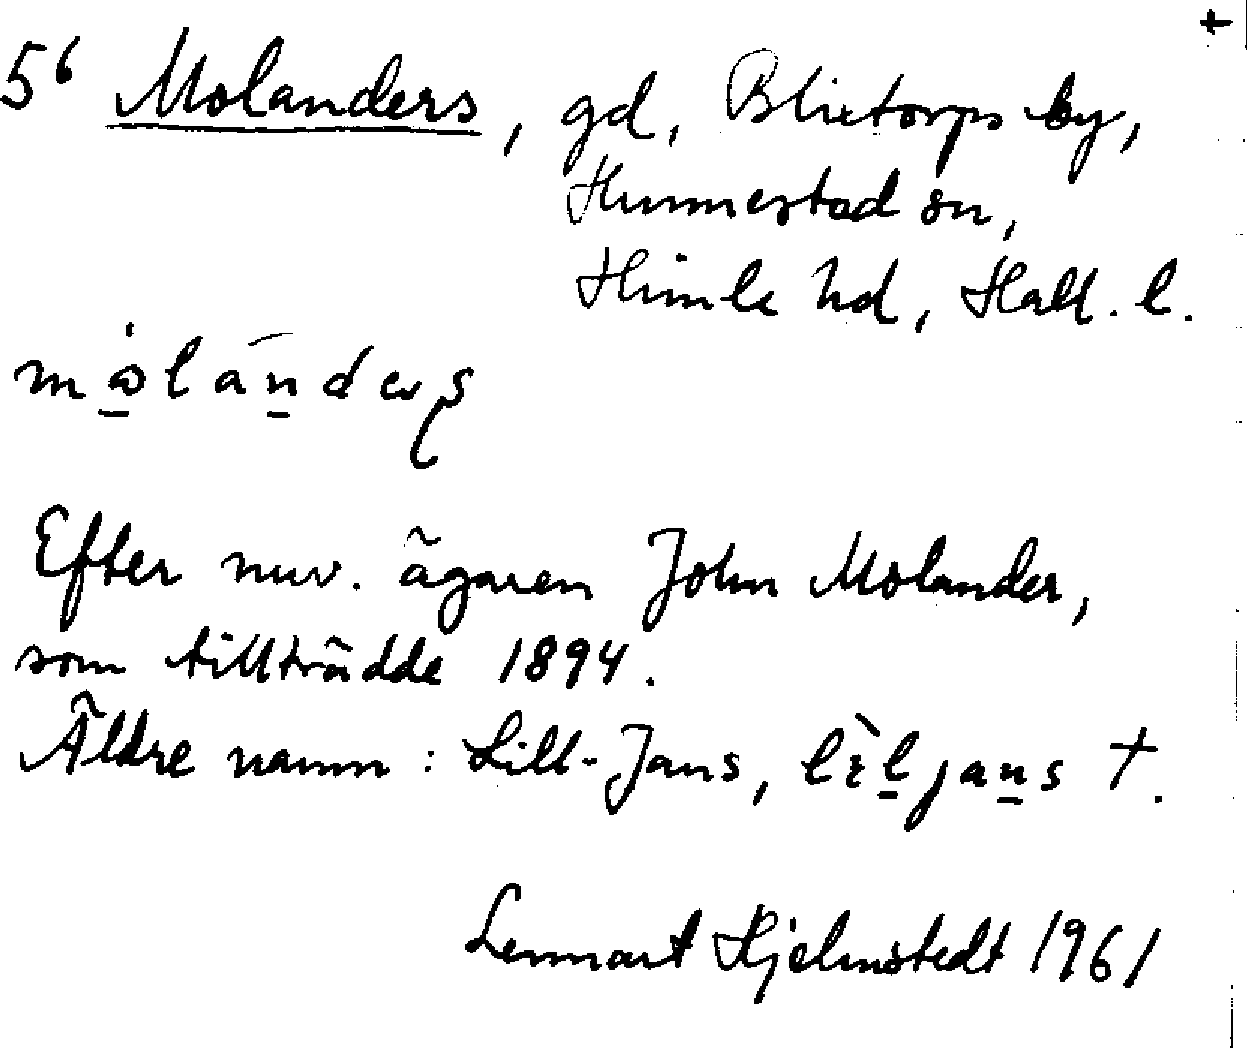 +
5⁶ Molanders, gd, Blixtorps by,
Hunnestad sn,
Himle hd, Hall. l.
Efter nuv. ägaren John Molander,
som tillträdde 1894.
Äldre namn: Lill-Jans, †.
Lennart Hjelmstedt 1961